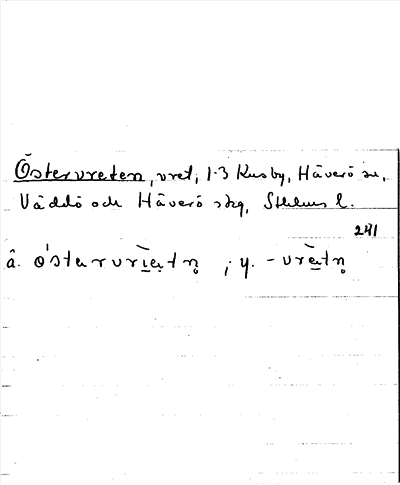 Östervreten, vret, 1-3 Kusby, Häverö sn,
Väddö och Häverö skg, Sthlms l.
241
â. ö́star vrìetn̥ ; y. -vrètn̥